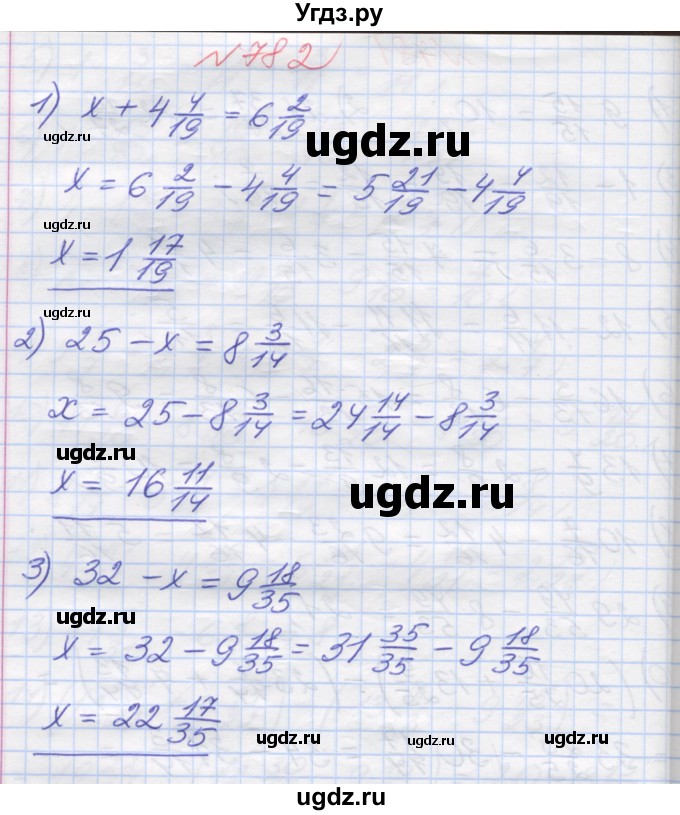 Угдз.ру
№782
1) x + 4 4/19 = 6 2/19
ugdz.ru
ugdz.ru
x = 6 2/19 - 4 4/19 = 5 21/19 - 4 4/19
ugdz.ru
x = 1 17/19
ugdz.ru
2) 25 - x = 8 3/14
x = 25 - 8 3/14 = 24 14/14 - 8 3/14
ugdz.ru
x = 16 11/14
ugdz.ru
3) 32 - x = 9 18/35
ugdz.ru
x = 32 - 9 18/35 = 31 35/35 - 9 18/35
x = 22 17/35
ugdz.ru
ugdz.ru
ugdz.ru
ugdz.ru